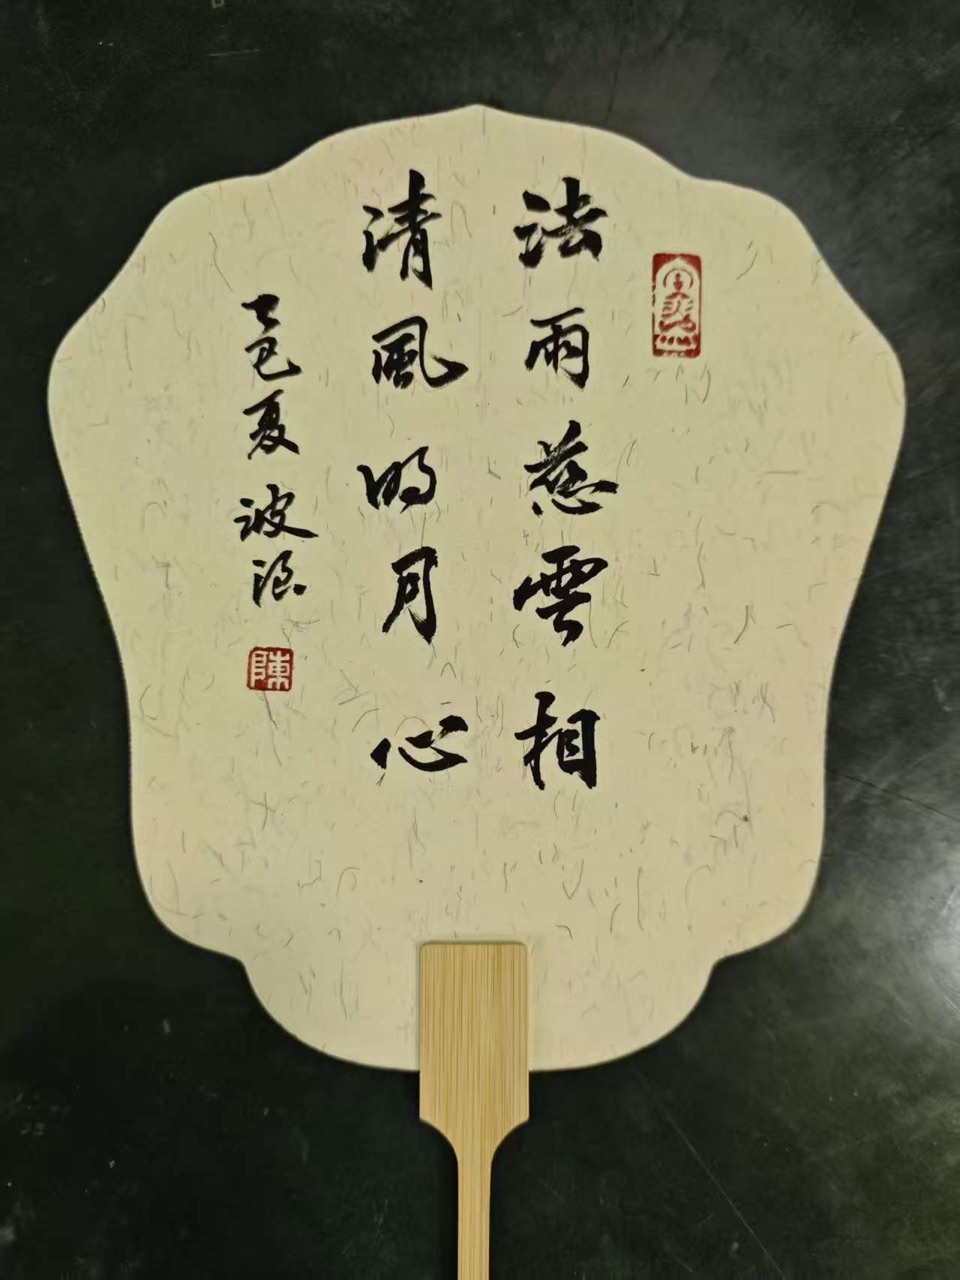 法雨慈雲相
清風明月心
乙巳夏 波浪
陳